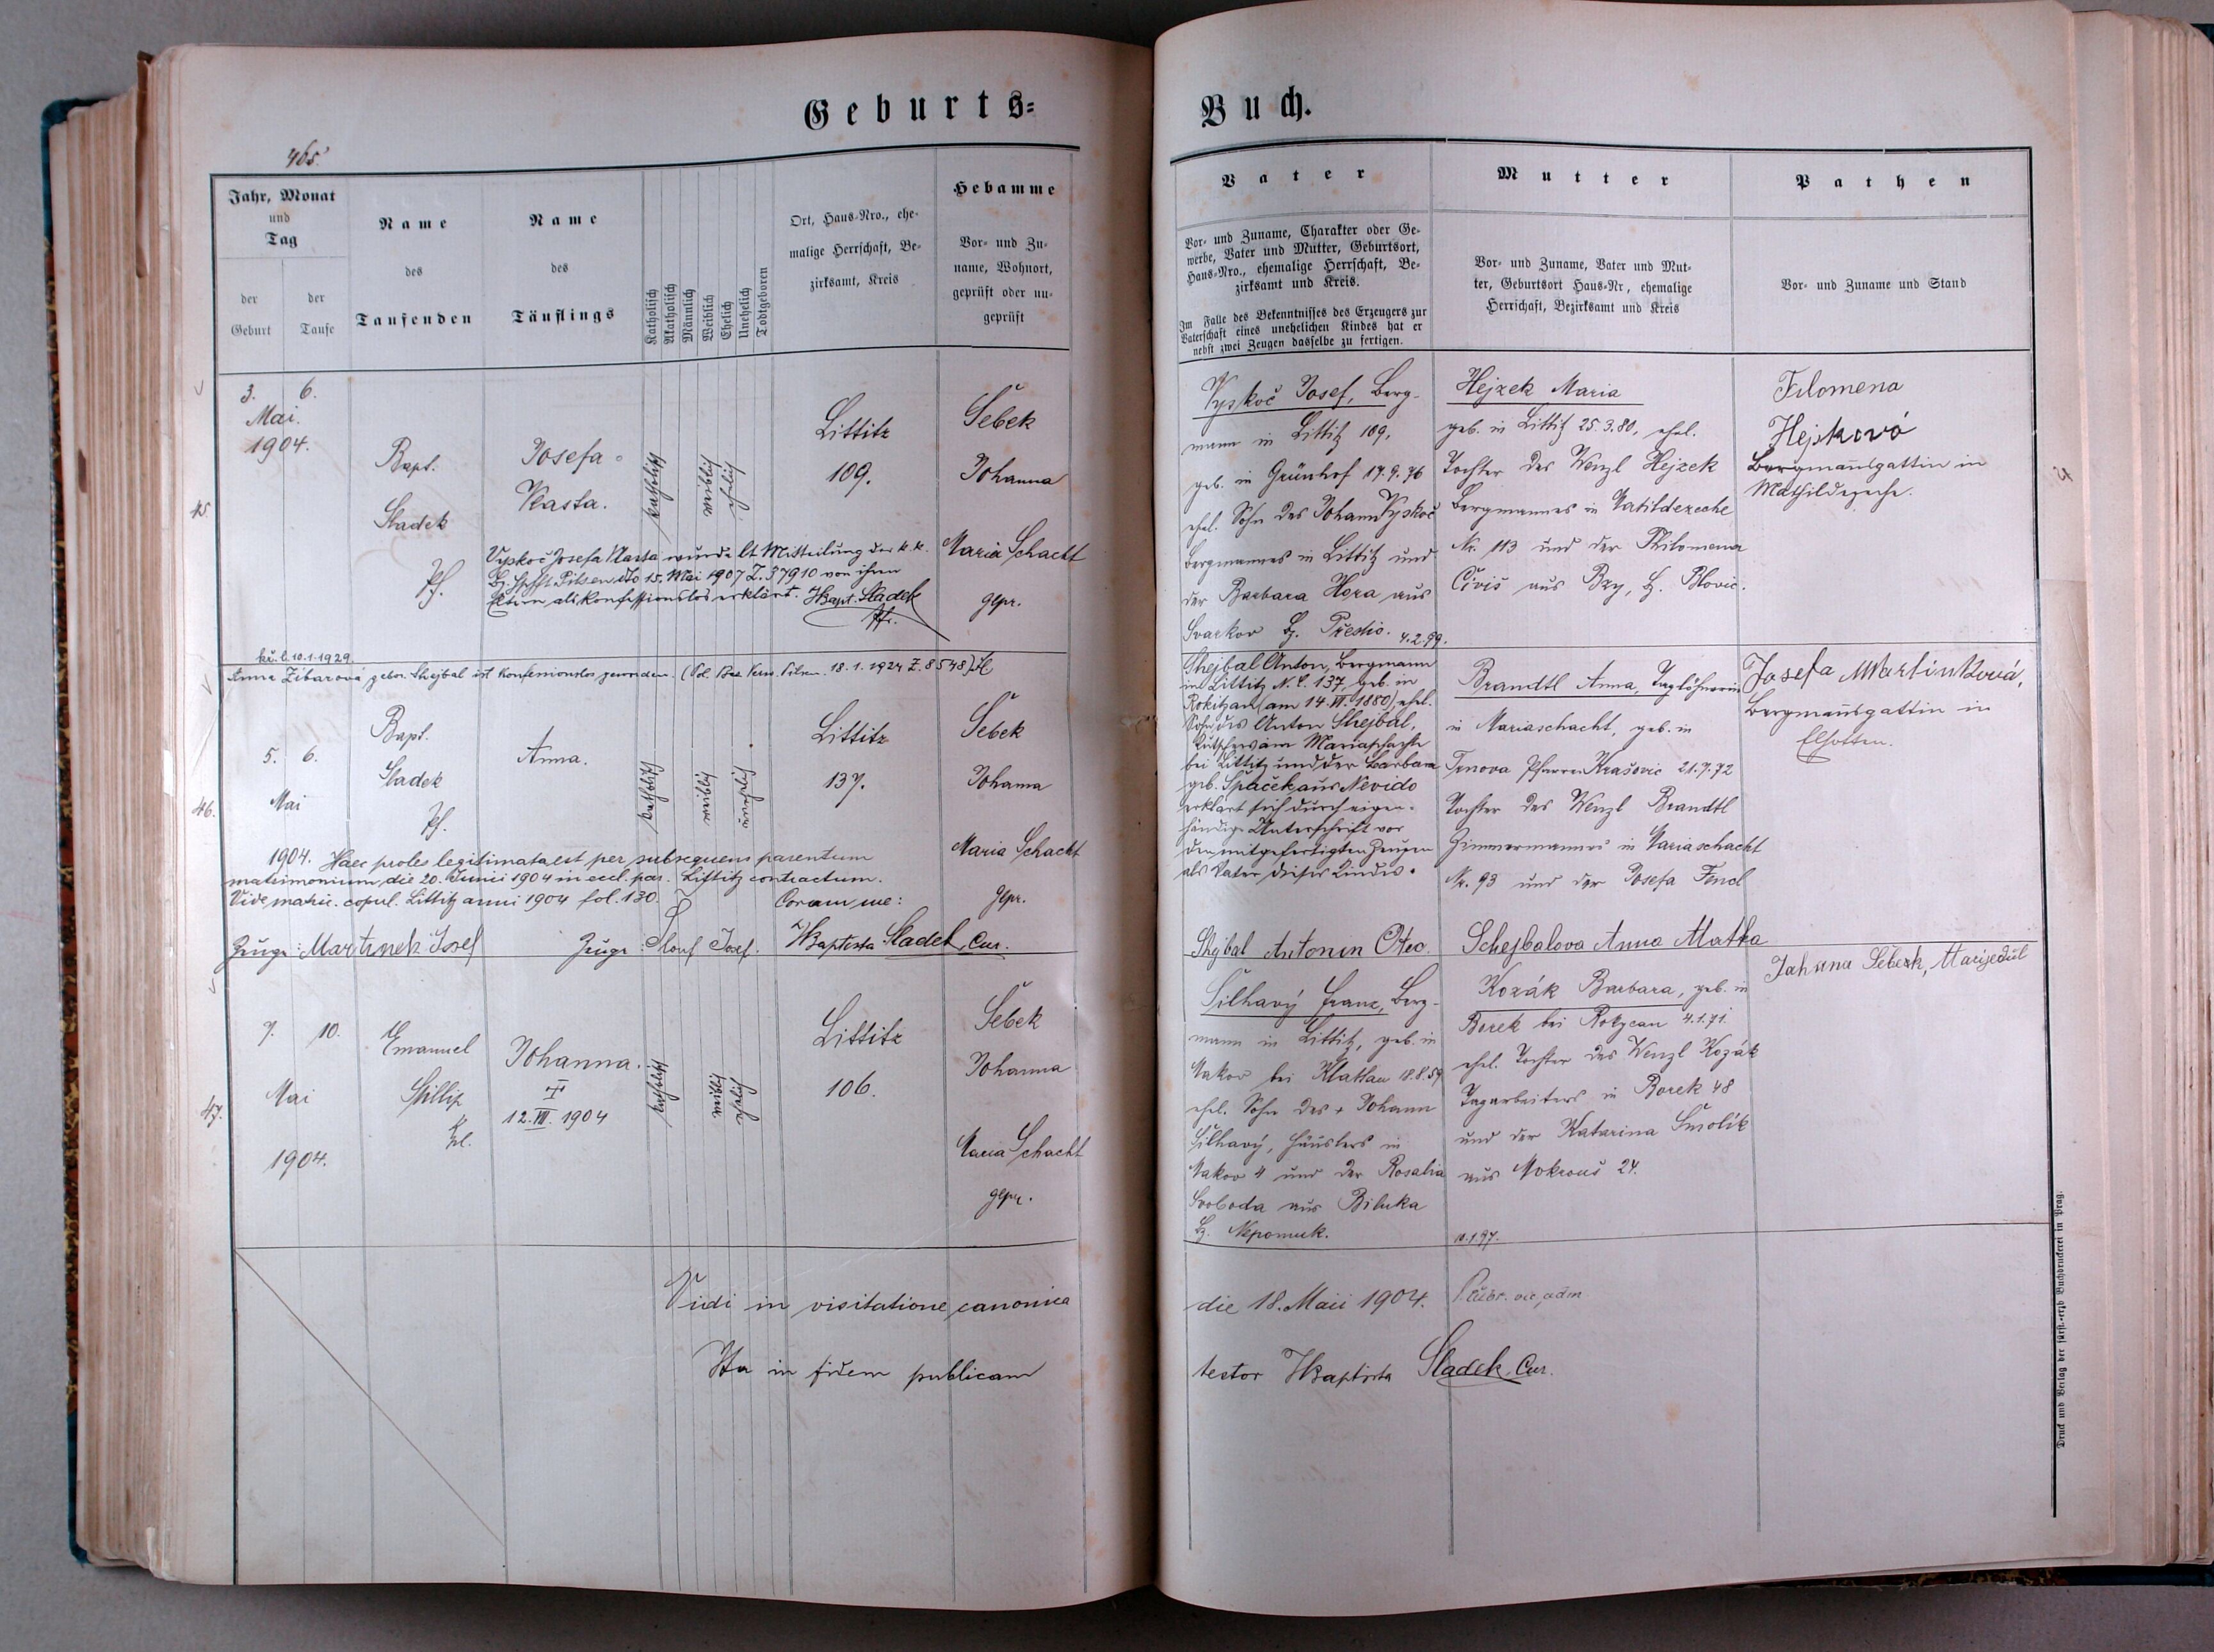 Geburts=
Buch.
465.
Jahr, Monat
und
Tag
der
Geburt
der
Taufe
Name
des
Taufenden
Name
des
Täuflings
Katholisch
Akatholisch
Männlich
Weiblich
Ehelich
Unehelich
Todtgeboren
Ort, Haus-Nro., ehe-
malige Herrschaft, Be-
zirksamt, Kreis
Hebamme
Vor- und Zu-
name, Wohnort,
geprüft oder un-
geprüft
Vater
Vor- und Zuname, Charakter oder Ge-
werbe, Vater und Mutter, Geburtsort,
Haus-Nro., ehemalige Herrschaft, Be-
zirksamt und Kreis.
Im Falle des Bekenntnisses des Erzeugers zur
Vaterschaft eines unehelichen Kindes hat er
nebst zwei Zeugen dasselbe zu fertigen.
Mutter
Vor- und Zuname, Vater und Mut-
ter, Geburtsort Haus-Nr, ehemalige
Herrschaft, Bezirksamt und Kreis
Pathen
Vor- und Zuname und Stand
45.
3. 6.
Mai.
1904.
Bapt.
Sladek
Pf.
Josefa
Vlasta.
katholisch
weiblich
ehelich
Littitz
109.
Šebek
Johanna
Maria Schacht
gepr.
Vyskoč Josefa Vlasta wurde lt Mitteilung der k.k.
Bz. Hptft Pilsen dto 15. Mai 1907 Z. 37910 von ihren
Eltern als konfessionslos erklärt. JBapt. Sladek
Pfr.
Vyskoč Josef, Berg-
mann in Littitz 109,
geb. in Grünhof 17.9.76
ehel. Sohn des Johann Vyskoč
Bergmannes in Littitz und
der Barbara Hora aus
Svarkov Bz. Přestic. 4.2.99.
Hejzek Maria
geb. in Littitz 25.3.80, ehel.
Tochter des Wenzl Hejzek
Bergmannes in Matildezeche
Nr. 113 und der Philomena
Čiviš aus Bzy, B. Blovic.
Filomena
Hejskovó
Bergmannsgattin in
Mathildezeche.
kř. l. 10.1.1929.
Anna Žibarova gebor. Shejbal ist konfessionslos geworden. (Pol. Bez. Verw. Pilsen 18.1.1924 Z. 8548) Sl
46.
5. 6.
Mai
1904.
Bapt.
Sladek
Pf.
Anna.
katholisch
weiblich
unehelich
Littitz
137.
Šebek
Johanna
Maria Schacht
gepr.
Haec proles legitimata est per subsequens parentum
matrimonium, die 20. Junii 1904 in eccl. par. Littitz contractum.
Vide matric. copul. Littitz anni 1904 fol. 130.
Coram me:
Zeuge: Martinek Josef
Zeuge: Slouf Josef.
JBaptista Sladek, Cur.
Shejbal Anton, Bergmann
in Littitz N. C. 137, geb. in
Rokitzan (am 14. VI. 1880), ehel.
Sohn des Anton Shejbal,
Kutschers am Mariaschachte
bei Littitz und der Barbara
geb. Špaček aus Nevido
erklärt sich durch eigen-
händige Unterschrift vor
den mitgefertigten Zeugen
als Vater dieses Kindes.
Shejbal Antonin Otec.
Brandtl Anna, Taglöhnerin
in Mariaschacht, geb. in
Trnova Pfarre Krašovic 21.7.72
Tochter des Wenzl Brandtl
Zimmermannes in Mariaschacht
Nr. 93 und der Josefa Fencl
Schejbalova Anna Matka
Josefa Martinková,
Bergmannsgattin in
47.
7. 10.
Mai
1904.
Emanuel
Skillip
Kpl.
Johanna.
†
12. VII. 1904
katholisch
weiblich
ehelich
Littitz
106.
Šebek
Johanna
Maria Schacht
gepr.
Šilhavý Franz, Berg-
mann in Littitz, geb. in
Makov bei Klattau 18.8.59
ehel. Sohn des † Johann
Šilhavý, Häuslers in
Makov 4 und der Rosalia
Svoboda aus Biluka
B. Nepomuk.
Kozák Barbara, geb. in
Borek bei Rokycan 4.1.71.
ehel. Tochter des Wenzl Kozák
Tagarbeiters in Borek 48
und der Katarina Smolik
aus Mokrouš 24.
10.1.97.
Jahana Šebesk, Marijedúl
Vidi in visitatione canonica
die 18. Maii 1904.
Ita in fidem publicam
testor JBaptista Sladek, Cur.
Druck und Verlag der fürst.-erzb. Buchdruckerei in Prag.